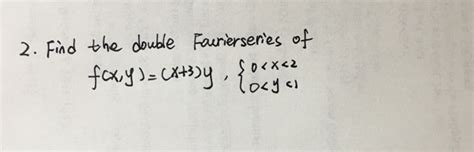 2. Find the double Fourierseries of
f(x,y)=(x+3)y, { 0<x<2
0<y<1